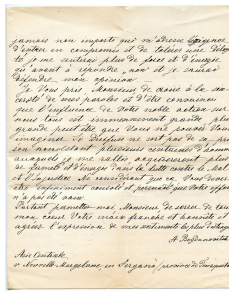 jamais non importe qui m'adresse exigence
d'entrer en compromis et de tolérer une
je me sentirai plus de force et d'énergie
qu'avant à répondre "non" et je saurai
défendre mon opinion.
Je Vous prie, Monsieur de croire à la sin-
cérité de mes paroles et d'être convaincu
que l'influence de Votre noble action sur
nous tous est immensement grande, plus
grande peut être que Vous ne pouvez Vous
imaginer.
plusieurs centaines d'hommes
auxquels je me rallie acquièreront plus
de fermeté et d'énergie dans la lutte contre le Mal
et l'Injustice. Ne considérant que ça Vous devez
être infiniment consolé et persuadé que Votre effort
n'a pas été vain.
Partant permettez-moi Monsieur de serrer de tout
mon coeur Votre main franche et honnête et
agréer l'expression de mes sentiments les plus distingués
Asie Centrale
Nouvelle Marguelane, en Fergana, province de